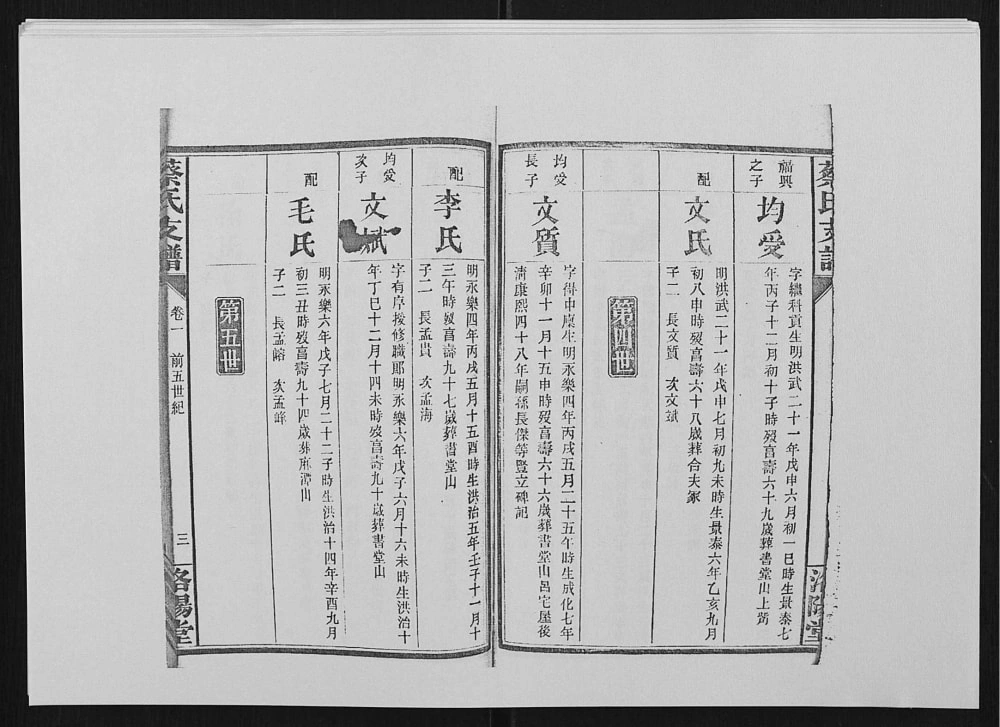 蔡氏支譜
洛陽堂
福興
之子
均受
字繼科貢生明洪武二十一年戊申六月初一巳時生景泰七
年丙子十二月初十子時歿亯壽六十九歲葬書堂山上
配
文氏
明洪武二十一年戊申七月初九未時生景泰六年乙亥九月
初八申時歿亯壽六十八歲葬合夫冢
子二　長文質　次文斌
第四世
均受
長子
文質
字得中廪生明永樂四年丙戌五月二十五午時生成化七年
辛卯十一月十五申時歿亯壽六十六歲葬書堂山邑宅屋後
清康熙四十八年嗣孫長傑等豎立碑記
配
李氏
明永樂四年丙戌五月十五酉時生洪治五年壬子十一月十
三午時歿亯壽九十七歲葬書堂山
子二　長孟貴　次孟海
均受
次子
文斌
字有序授修職郎明永樂六年戊子六月十六未時生洪治十
年丁巳十二月十四未時歿亯壽九十歲葬書堂山
配
毛氏
明永樂六年戊子七月二十二子時生洪治十四年辛酉九月
初三丑時歿亯壽九十四歲葬麻潭山
子二　長孟　次孟峰
第五世
蔡氏支譜
卷一　前五世紀
三
洛陽堂